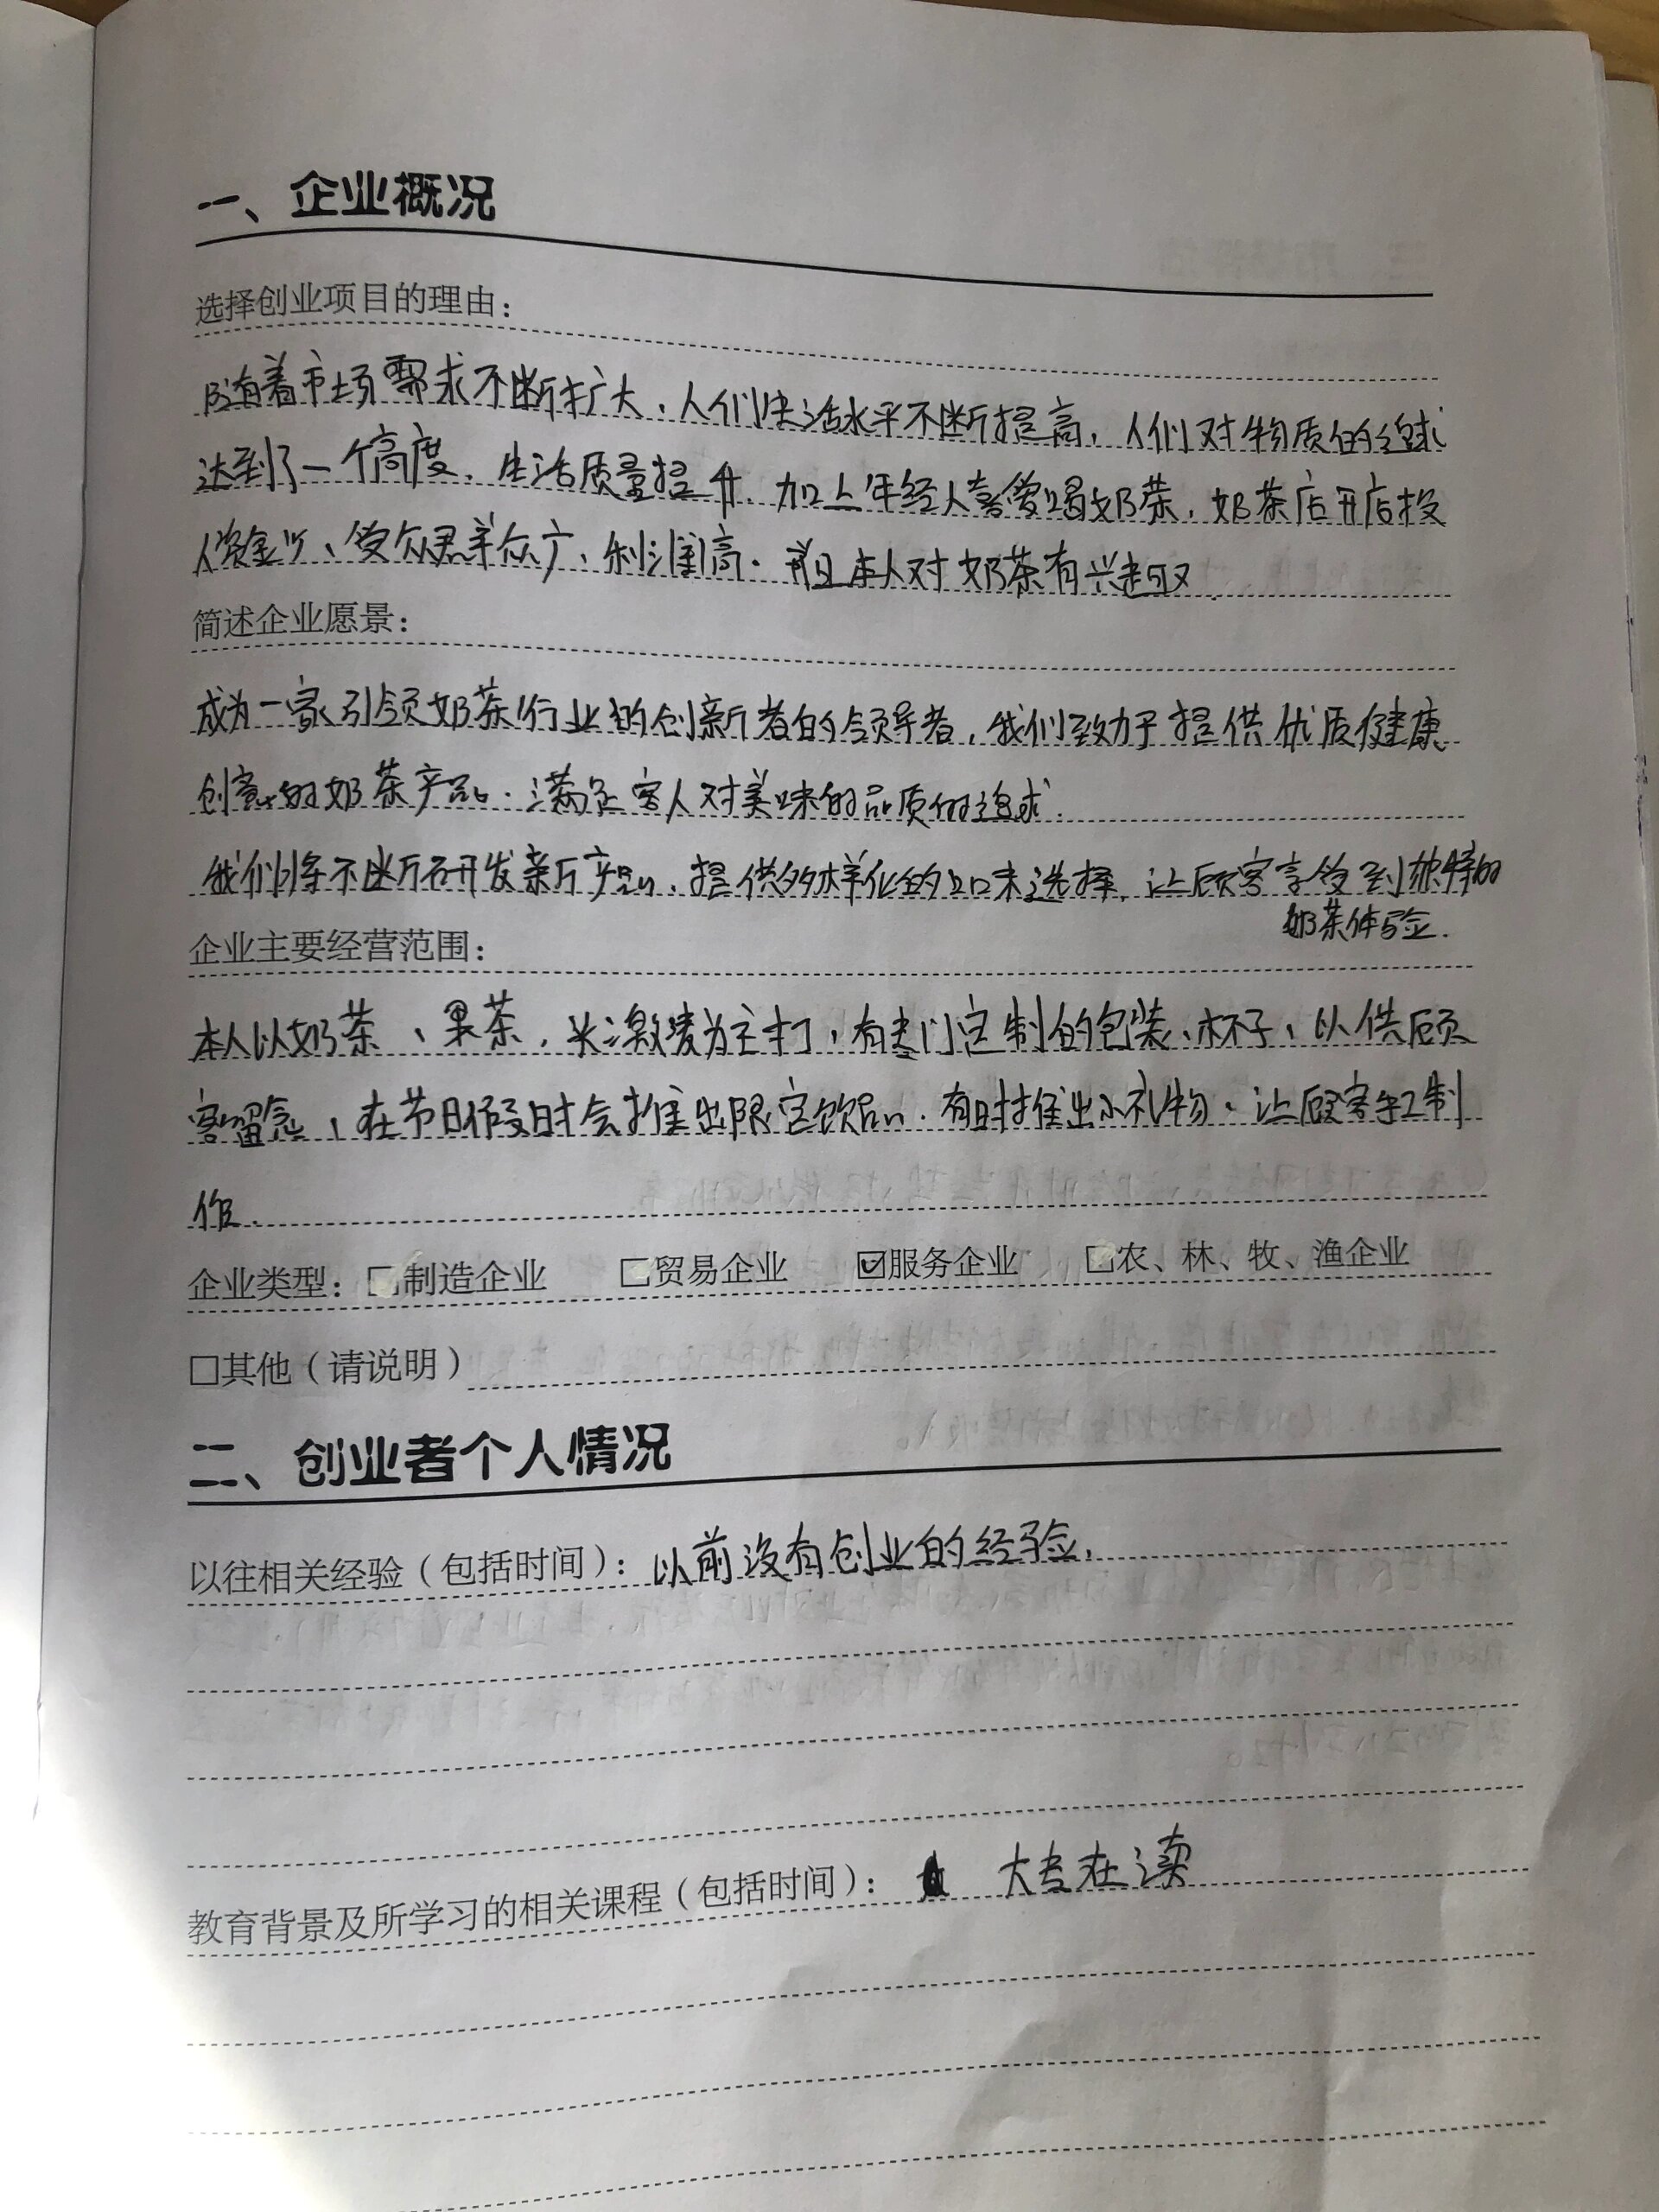 一、企业概况
选择创业项目的理由：
随着市场需求不断扩大，人们生活水平不断提高，人们对物质的追求
达到了一个高度，生活质量提升，加上年轻人喜爱喝奶茶，奶茶店开店投
入资金少、受众群众广、利润高。并且本人对奶茶有兴趣
简述企业愿景：
成为一家引领奶茶行业的创新者的领导者，我们致力于提供优质健康
创意的奶茶产品．满足客人对美味的品质的追求．
我们将不断研发新产品，提供多样化的口味选择，让顾客享受到独特的
奶茶体验．
企业主要经营范围：
本人以奶茶、果茶，为主打，有专门定制的包装、杯子，以供顾
客留念，在节日假日时会推出限定饮品．有时推出小礼物，让顾客手工制
作．
企业类型：□制造企业 □贸易企业 ☑服务企业 □农、林、牧、渔企业
□其他（请说明）
二、创业者个人情况
以往相关经验（包括时间）：以前没有创业的经验．
教育背景及所学习的相关课程（包括时间）：大专在读